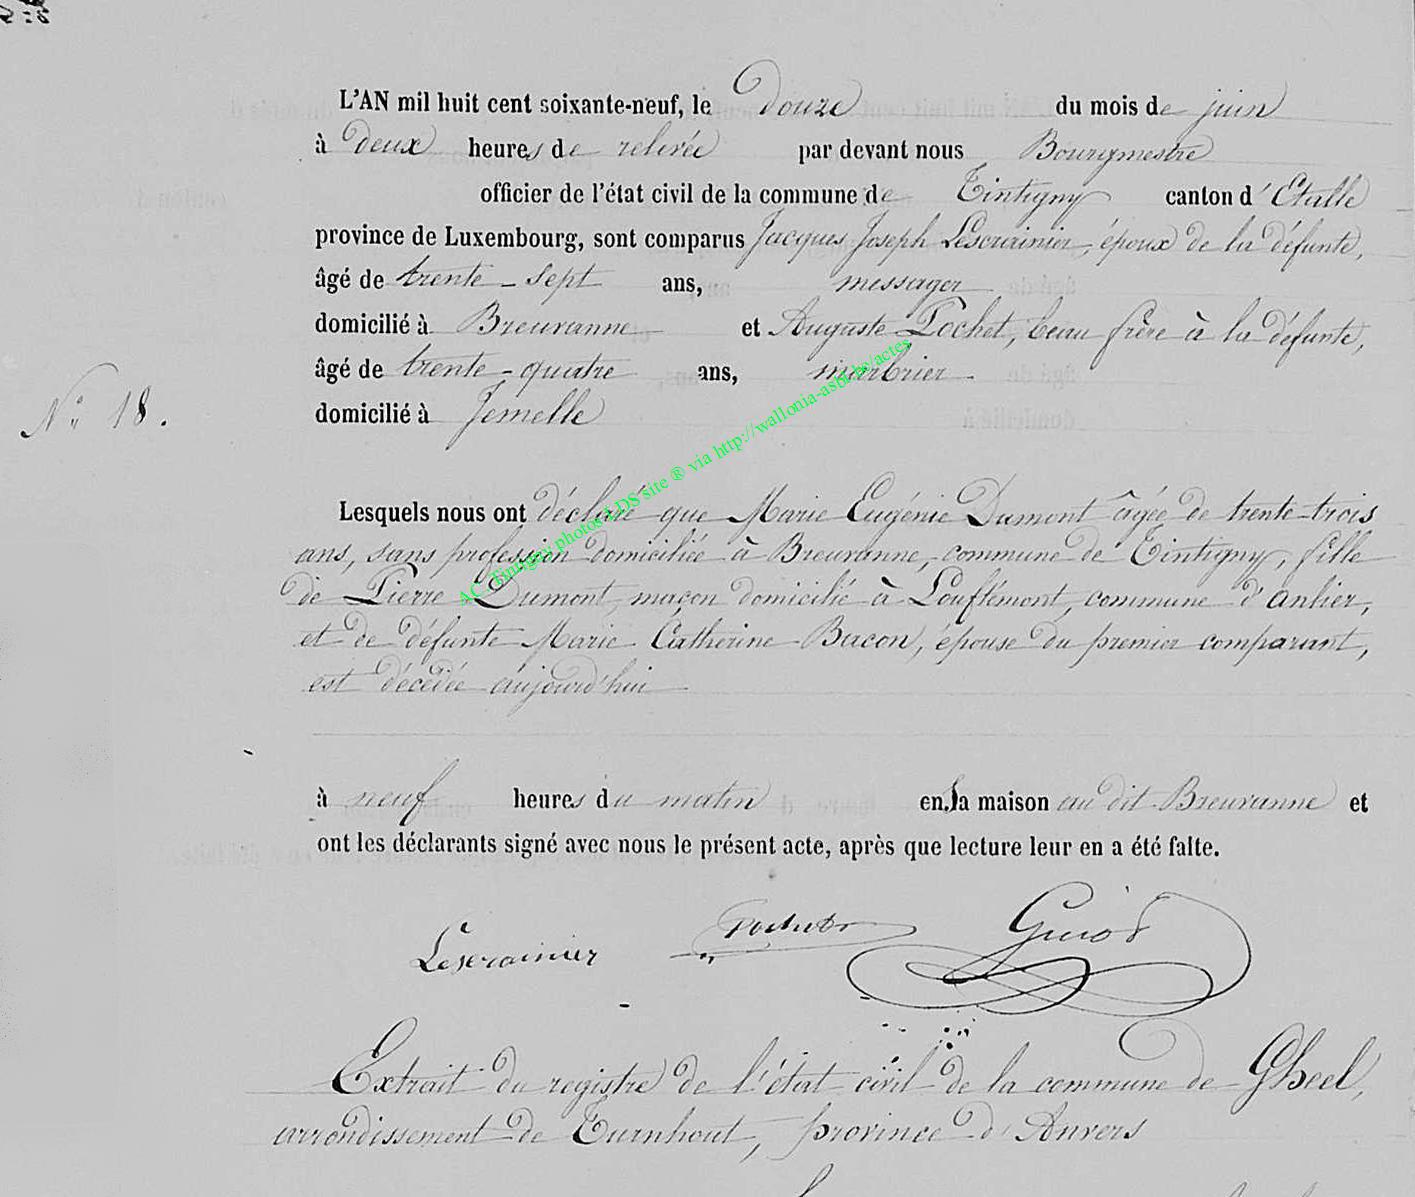 L'AN mil huit cent soixante-neuf, le Douze du mois de juin
à deux heures de relevée par devant nous Bourgmestre
officier de l'état civil de la commune de Tintigny canton d'Etalle
province de Luxembourg, sont comparus Jacques Joseph Lescrainier, époux de la défunte,
âgé de trente-sept ans, messager
domicilié à Breuvanne et Auguste Pochet, beau frère à la défunte,
âgé de trente-quatre ans, marbrier
domicilié à Jemelle
N° 18.
Lesquels nous ont déclaré que Marie Eugénie Dumont âgée de trente-trois
ans, sans profession domiciliée à Breuvanne, commune de Tintigny, fille
de Pierre Dumont, maçon domicilié à Louftémont, commune d'Anlier,
et de défunte Marie Catherine Bacon, épouse du premier comparant,
est décédée aujourd'hui
à neuf heures du matin en la maison au dit Breuvanne et
ont les déclarants signé avec nous le présent acte, après que lecture leur en a été faite.
Lescrainier Pochet
Extrait du registre de l'état civil de la commune de Gheel,
arrondissement de Turnhout, province d'Anvers
AC Tintigny photos LDS site ® via http://wallonia-asbl.be/actes